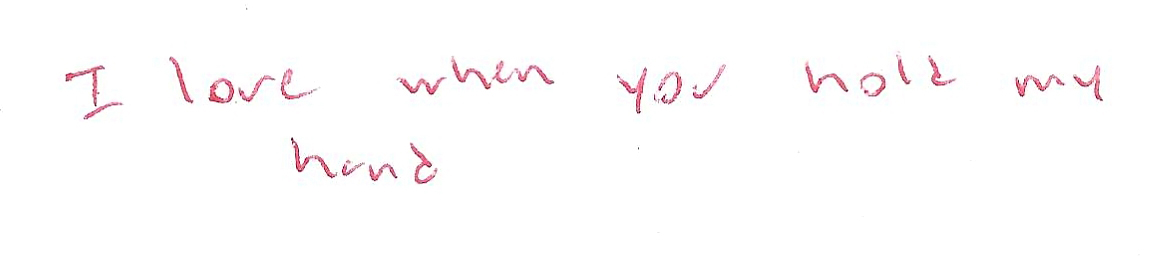 I love when you hold my
hand